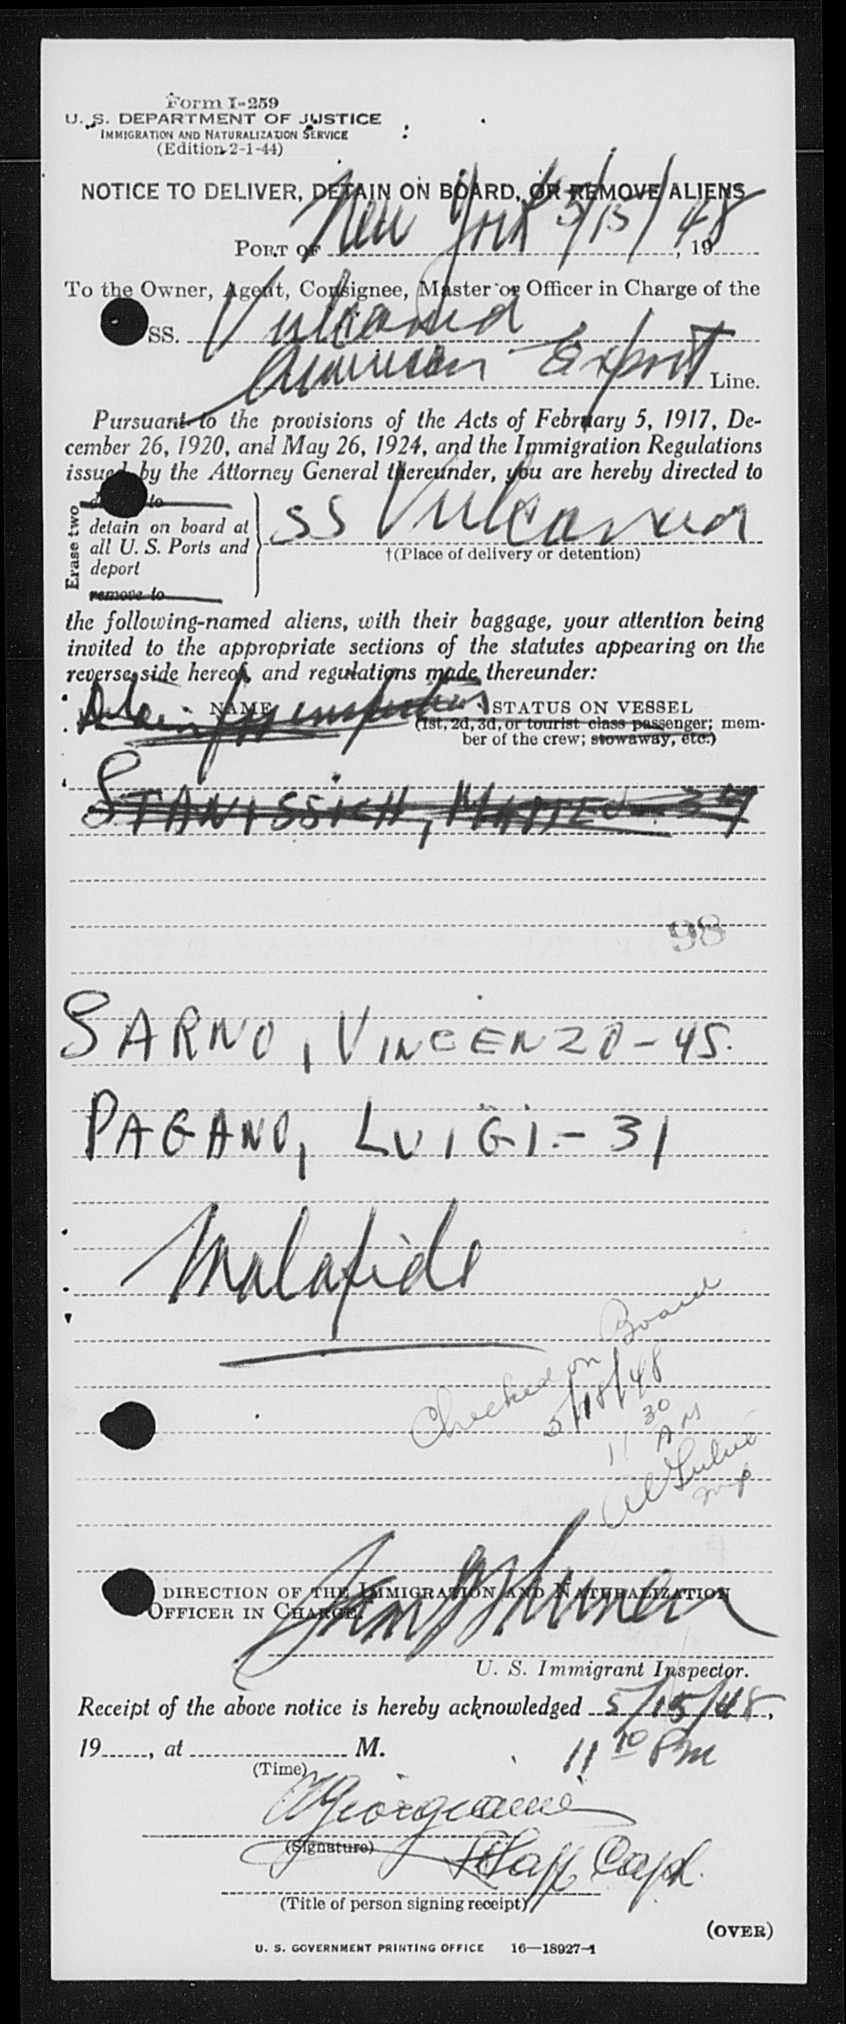 Form I-259
U. S. DEPARTMENT OF JUSTICE
IMMIGRATION AND NATURALIZATION SERVICE
(Edition 2-1-44)
NOTICE TO DELIVER, DETAIN ON BOARD, OR REMOVE ALIENS
PORT OF New York 5/15/48, 19
To the Owner, Agent, Consignee, Master or Officer in Charge of the
SS. Vulcania
American Export Line.
Pursuant to the provisions of the Acts of February 5, 1917, De-
cember 26, 1920, and May 26, 1924, and the Immigration Regulations
issued by the Attorney General thereunder, you are hereby directed to
Erase two
to
detain on board at
all U. S. Ports and
deport
remove to
SS Vulcania
†(Place of delivery or detention)
the following-named aliens, with their baggage, your attention being
invited to the appropriate sections of the statutes appearing on the
reverse side hereof, and regulations made thereunder:
Detain for inspection
NAME
STATUS ON VESSEL
(1st, 2d, 3d, or tourist class passenger; mem-
ber of the crew; stowaway, etc.)
STANISSICH, MATTEO - 37
98
SARNO, VINCENZO - 45.
PAGANO, LUIGI - 31
Malafide
Checked on Board
5/18/48
11 30
AM
DIRECTION OF THE IMMIGRATION AND NATURALIZATION
OFFICER IN CHARGE.
U. S. Immigrant Inspector.
Receipt of the above notice is hereby acknowledged 5/15/48,
19, at M.
(Time)
11 10 PM
(Signature)
Staff Capt.
(Title of person signing receipt)
(OVER)
U. S. GOVERNMENT PRINTING OFFICE 16—18927-1